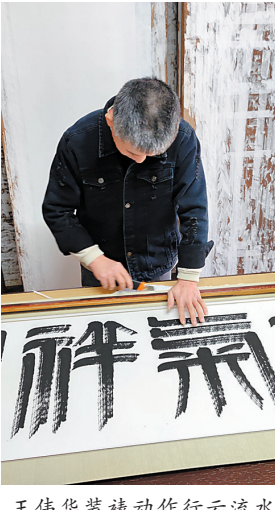 氣祥
王伟华装裱动作行云流水